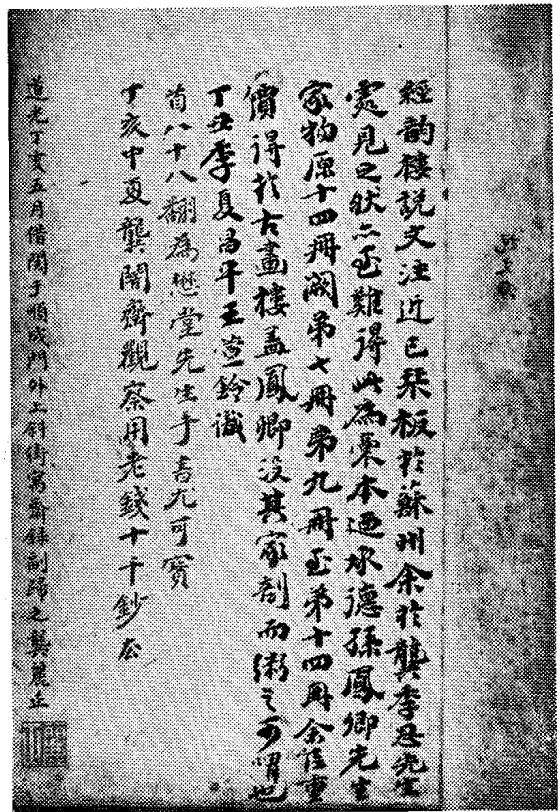 經韵樓說文注近已栞板於蘇州余於龔季思先生
處見之然亦至難得此為稾本迺承德孫鳳卿先生
家物原十四冊闕弟七冊弟九冊至弟十四冊余倍重
價得於古畫樓葢鳳卿沒其家剖而鬻之可喟也
丁丑季夏昌平王萱鈴識
首八十八翻為懋堂先生手書尤可寶
丁亥中夏龔闇齋觀察用老錢十千鈔去
道光丁亥五月借閱于順城門外上斜街寓齋錄副歸之龔麗正